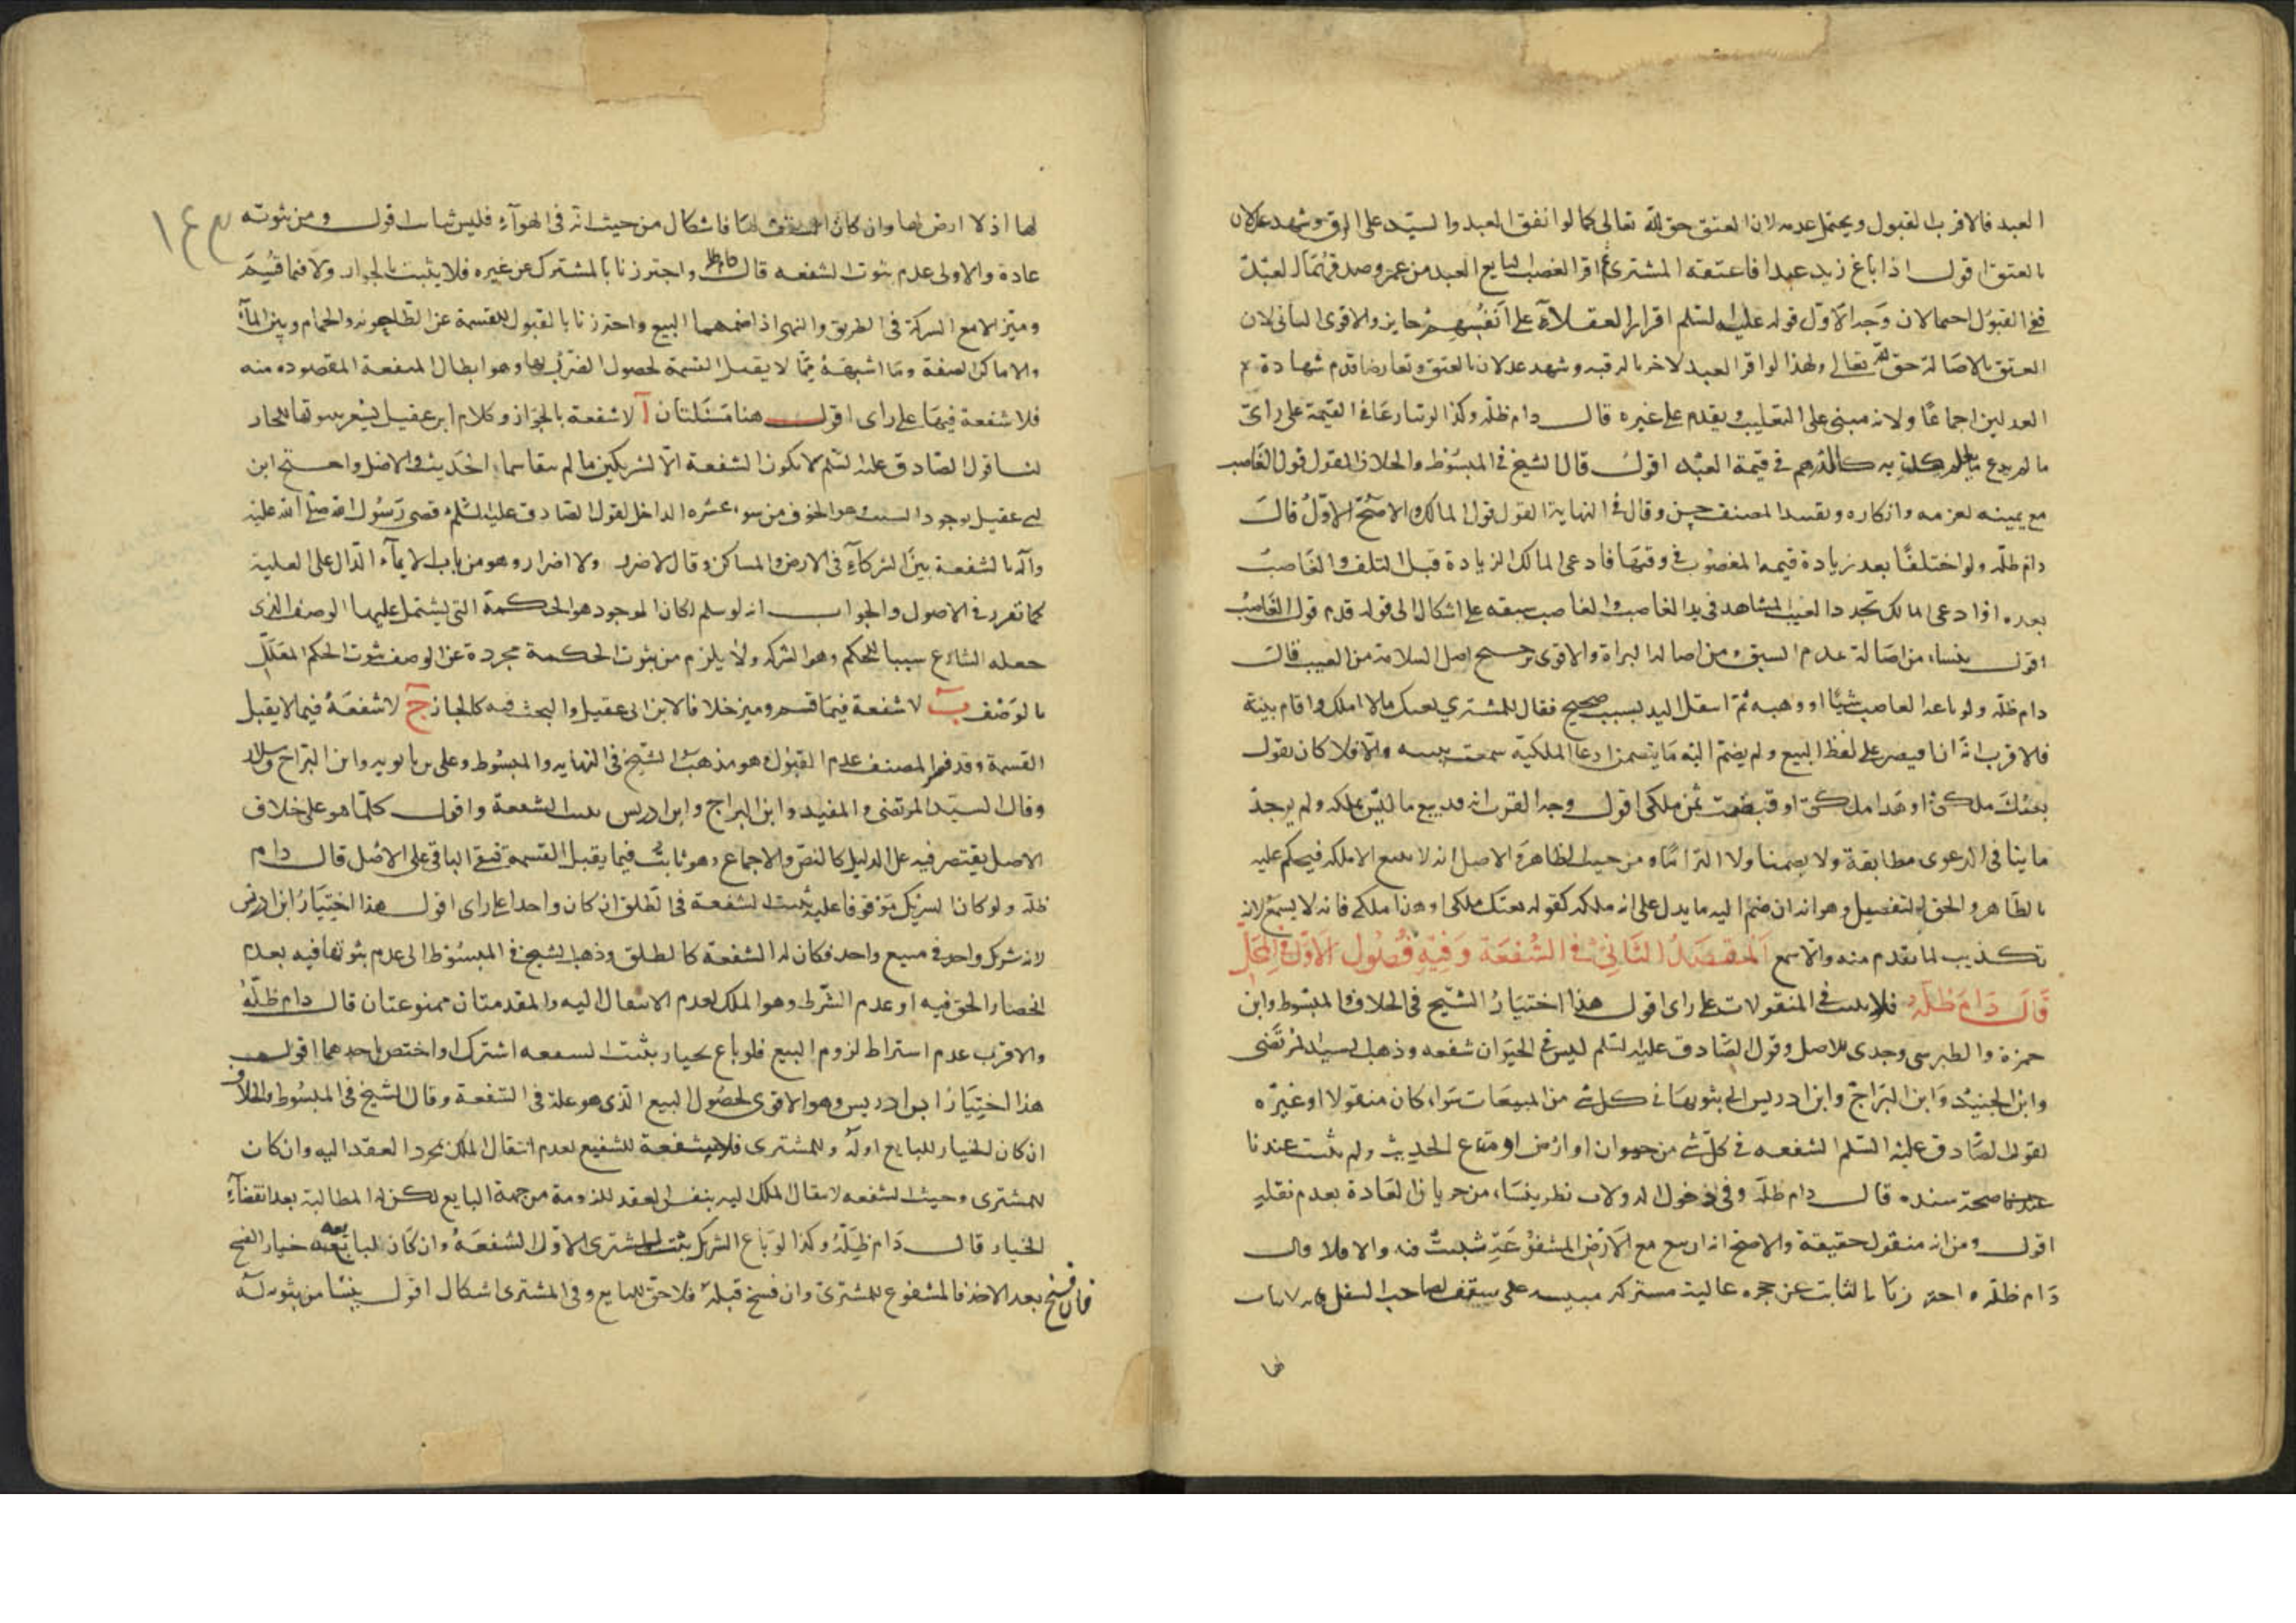 العبد فالاقرب القبول ويحتمل عدمه لان العتق حق لله تعالى كما لو اتفق العبد والسيد على الرق وشهد عدلان
بالعتق اقول اذا باع زيد عبدا فاعتقه المشتري ثم اقر الغصب البايع العبد من عمرو وصدقهما العبد
ففي القبول احتمالان وجه الاول قوله عليه السلم اقرار العقلاء على انفسهم جايز والاقوى الثاني لان
العتق بالاصالة حق لله تعالى ولهذا لو اقر العبد لاخر بالرقية وشهد عدلان بالعتق وتعارضا قدم شهادة
العدلين اجماعا ولانه مبني على التغليب ويقدم على غيره قال دام ظله وكذا لو تنازعا في القيمة على راي
ما لم يدع ما يعلم كذبه كالدرهم في قيمة العبد اقول قال الشيخ في المبسوط والخلاف القول قول الغاصب
مع يمينه لغرمه وانكاره وتقييد المصنف حسن وقال في النهاية القول قول المالك والاصح الاول قال
دام ظله ولو اختلفا بعد زيادة قيمة المغصوب في وقتها فادعى المالك الزيادة قبل التلف والغاصب
بعده او ادعى المالك تجدد العيب المشاهد في يد الغاصب والغاصب سبقه على اشكال الى قوله قدم قول الغاصب
اقول ينشاء من اصالة عدم السبق ومن اصالة البراة والاقوى ترجيح اصل السلامة من العيب قال
دام ظله ولو باعه الغاصب شيئا او وهبه ثم انتقل اليه بسبب صحيح فقال للمشتري بعتك ما لا املك واقام بينة
فالاقرب انه ان اقتصر على لفظ البيع ولم يضم اليه ما يتضمن ادعاء الملكية سمعت بينته والا فلا كان يقول
بعتك ملكي او هذا ملكي او قبضت ثمن ملكي اقول وجه القرب انه قد يبيع ما ليس بملكه ولم يوجد
ما ينافي الدعوى مطابقة ولا تضمنا ولا التزاما ومن حيث الظاهر والاصل انه لا يبيع الا ملكه فيحكم عليه
بالظاهر والحق التفصيل وهو انه ان ضم اليه ما يدل على انه ملكه كقوله بعتك ملكي او هذا ملكي فانه لا يسمع لانه
تكذيب لما تقدم منه والا سمع المقصد الثاني في الشفعة وفيه فصول الاول في المحل
قال دام ظله فلا يثبت في المنقولات على راي اقول هذا اختيار الشيخ في الخلاف والمبسوط وابن
حمزة والطبرسي وجدي للاصل وقول الصادق عليه السلم ليس في الحيوان شفعه وذهب السيد المرتضى
وابن الجنيد وابن البراج وابن ادريس الى ثبوتها في كل شي من المبيعات سواء كان منقولا او غيره
لقول الصادق عليه السلم الشفعه في كل شي من حيوان او ارض او متاع الحديث ولم يثبت عندنا
صحة سنده قال دام ظله وفي دخول الدولاب نظر ينشاء من جريان العادة بعدم نقله
اقول ومن انه منقول حقيقة والاصح انه ان بيع مع الارض المشفوعة ثبت فيه والا فلا قال
دام ظله واحترزنا بالثابت عن حجره عالية مشتركه مبنيه على سقف لصاحب السفل فانه لا ثبات
لها
لها اذ لا ارض لها وان كان السقف لهما فاشكال من حيث انه في الهواء فليس ثبات اقول ومن ثبوته
عادة والاولى عدم ثبوت الشفعه قال دام ظله واحترزنا بالمشترك عن غيره فلا يثبت بالجوار ولا فيما قسم
وميز الا مع الشركة في الطريق والنهر اذا ضمهما البيع واحترزنا بالقبول للقسمة عن الطاحونه والحمام وبير الماء
والاماكن الضيقة وما اشبهه مما لا يقبل القسمة لحصول الضرر بها وهو ابطال المنفعة المقصوده منه
فلا شفعة فيها على راي اقول هنا مسئلتان آ لا شفعة بالجواز وكلام ابن عقيل يشعر بثبوتها للجار
لنا قول الصادق عليه السلم لا تكون الشفعة الا لشريكين ما لم يتقاسما الحديث والاصل واحتج ابن
ابي عقيل بوجود السبب وهو الخوف من سوء عشره الداخل لقول الصادق عليه السلم قضى رسول الله صلى الله عليه
وآله بالشفعة بين الشركاء في الارض والمساكن وقال لا ضرر ولا اضرار وهو من باب الايماء الدال على العلية
كما تقرر في الاصول والجواب انه لو سلم لكان الموجود هو الحكمة التي يشتمل عليها الوصف الذي
جعله الشارع سببا للحكم وهو الشركه ولا يلزم من ثبوت الحكمة مجردة عن الوصف ثبوت الحكم المعلل
بالوصف ب لا شفعة فيما قسم وميز خلافا لابن ابي عقيل والبحث فيه كالجار ج لا شفعة فيما لا يقبل
القسمة وقد المصنف عدم القبول هو مذهب الشيخ في النهايه والمبسوط وعلي بن بابويه وابن البراج وسلار
وقال السيد المرتضى والمفيد وابن البراج وابن ادريس يثبت الشفعة واقول كلما هو على خلاف
الاصل يقتصر فيه على الدليل كالنص والاجماع وهو ثابت فيما يقبل القسمة فبقي الباقي على الاصل قال دام
ظله ولو كان الشريك موقوفا عليه تثبت الشفعة في الطلق ان كان واحدا على راي اقول هذا اختيار ابن ادريس
لانه شريك واحد في مبيع واحد فكان له الشفعة كالطلق وذهب الشيخ في المبسوط الى عدم ثبوتها فيه بعدم
انحصار الحق فيه او عدم الشرط وهو الملك لعدم الانتقال اليه والمقدمتان ممنوعتان قال دام ظله
والاقرب عدم اشتراط لزوم البيع فلو باع بخيار يثبت الشفعه اشترك او اختص باحدهما اقول
هذا اختيار ابن ادريس وهو الاقوى لحصول البيع الذي هو علة في الشفعة وقال الشيخ في المبسوط والخلاف
ان كان الخيار للبايع اوله وللمشتري فلا شفعة للشفيع لعدم انتقال الملك بمجرد العقد اليه وان كان
للمشتري وحيث الشفعه لانتقال الملك اليه بنفس العقد للزومه من جهة البايع لكن له المطالبة بعد انقضاء
الخيار قال دام ظله وكذا لو باع الشريك يثبت للمشتري الاول الشفعة وان كان لبايعه خيار الفسخ
فان فسخ بعد الاخذ فالمشفوع للمشتري وان فسخ قبله فلا حق للبايع وفي المشتري اشكال اقول ينشا من ثبوت
١٤٣